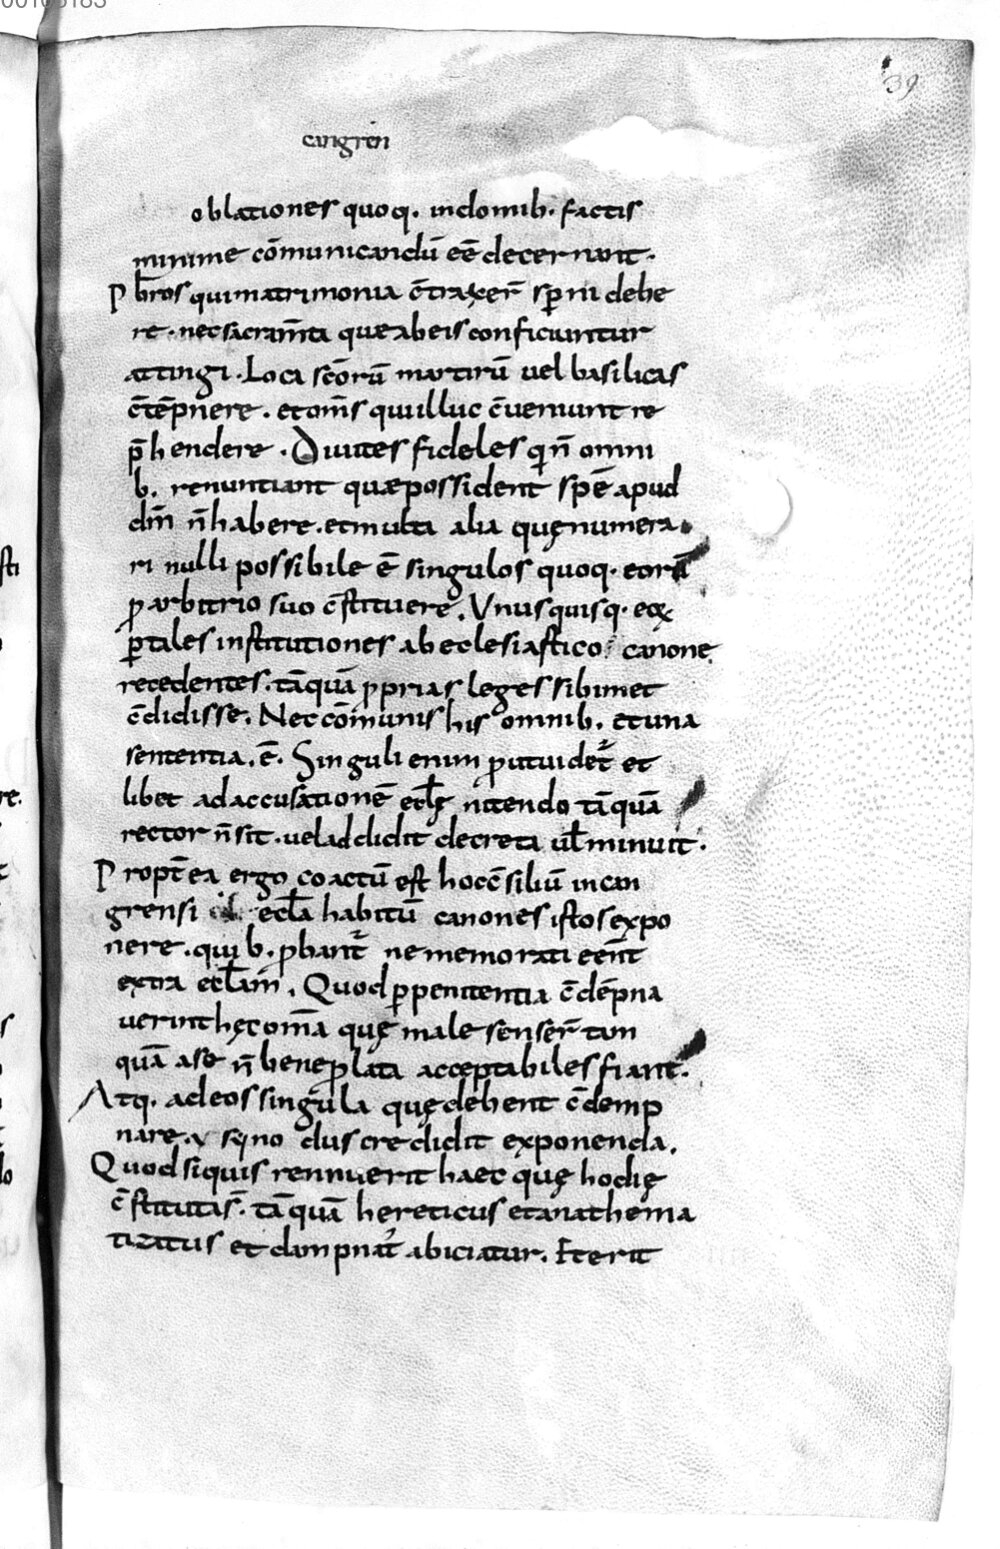 00106183
39
cangren̄
oblationes quoq. indomib. factis
minime cōmunicandū eē decernant.
Pb̄ros quimatrimonia c̄traxer̄ sperni debe
re. nec sacram̄ta quæ abeis conficiuntur
attingi. Loca sc̄orū martirū uel basilicas
c̄tēpnere. et om̄s qui illuc c̄ueniunt re
p̄hendere. Diuites fideles qi n̄ omni
b. renuntiant quæ possident spē apud
dm̄ n̄ habere. et multa alia quę numera
ri nulli possibile ē singulos quoq. eorū
ꝓ arbitrio suo c̄stituere. Vnusquisq. ex
ꝑ tales institutiones ab eclesiastico canone
recedentes. tāquā ꝓprias leges sibimet
c̄didisse. Nec cōmunis his omnib. et una
sententia. ē. Singuli enim ꝓut uidet᷒ et
libet ad accusationē ecl̄ę nitendo tāquā
rector n̄ sit. uel addidit decreta ul̄ minuit.
Propt̄ea ergo coactū est hoc c̄siliū in can
grensi ecl̄a habitū canones istos expo
nere. qui b. ꝓbant᷒ ne memorati eēnt
extra ecl̄am. Quod ꝑ penitentia c̄dēpna
uerint hęc om̄a quę male senser̄ tan
quā a se n̄ bene ꝓlata acceptabiles fiant.
Atq. adeos singula quę debent c̄demp
nare. synodus credidit exponenda.
Quod siquis rennuerit haec quę hodię
c̄stituta s̄. tāquā hereticus et anathema
tizatus et dampnat᷒ abiciatur. Et erit